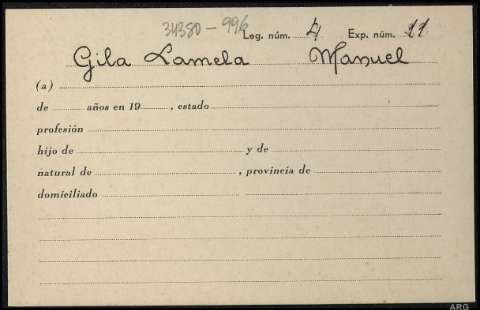 34380-996
Leg. núm. 4 Exp. núm. 11
Gila Lamela Manuel
(a)
de años en 19 , estado
profesión
hijo de y de
natural de , provincia de
domiciliado
ARG